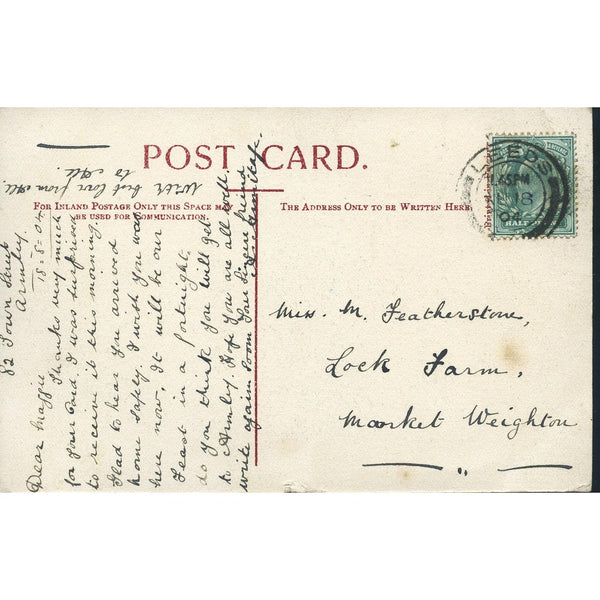 POST CARD.
FOR INLAND POSTAGE ONLY THIS SPACE MAY
BE USED FOR COMMUNICATION.
THE ADDRESS ONLY TO BE WRITTEN HERE.
LEEDS
1.45PM
18
HALF
Miss. M. Featherstone,
Lock Farm,
Market Weighton
82 Town Street
Armley.
18.5.04
Dear Maggie
Thanks very much
for your Card, I was surprised
to receive it this morning.
Glad to hear you arrived
home safely. I wish you was
here now, It will be our
Feast in a fortnight,
do you think you will get
to Armley. Hope you are all well.
write again soon Your Sincere friend
With best love from All.
to All.